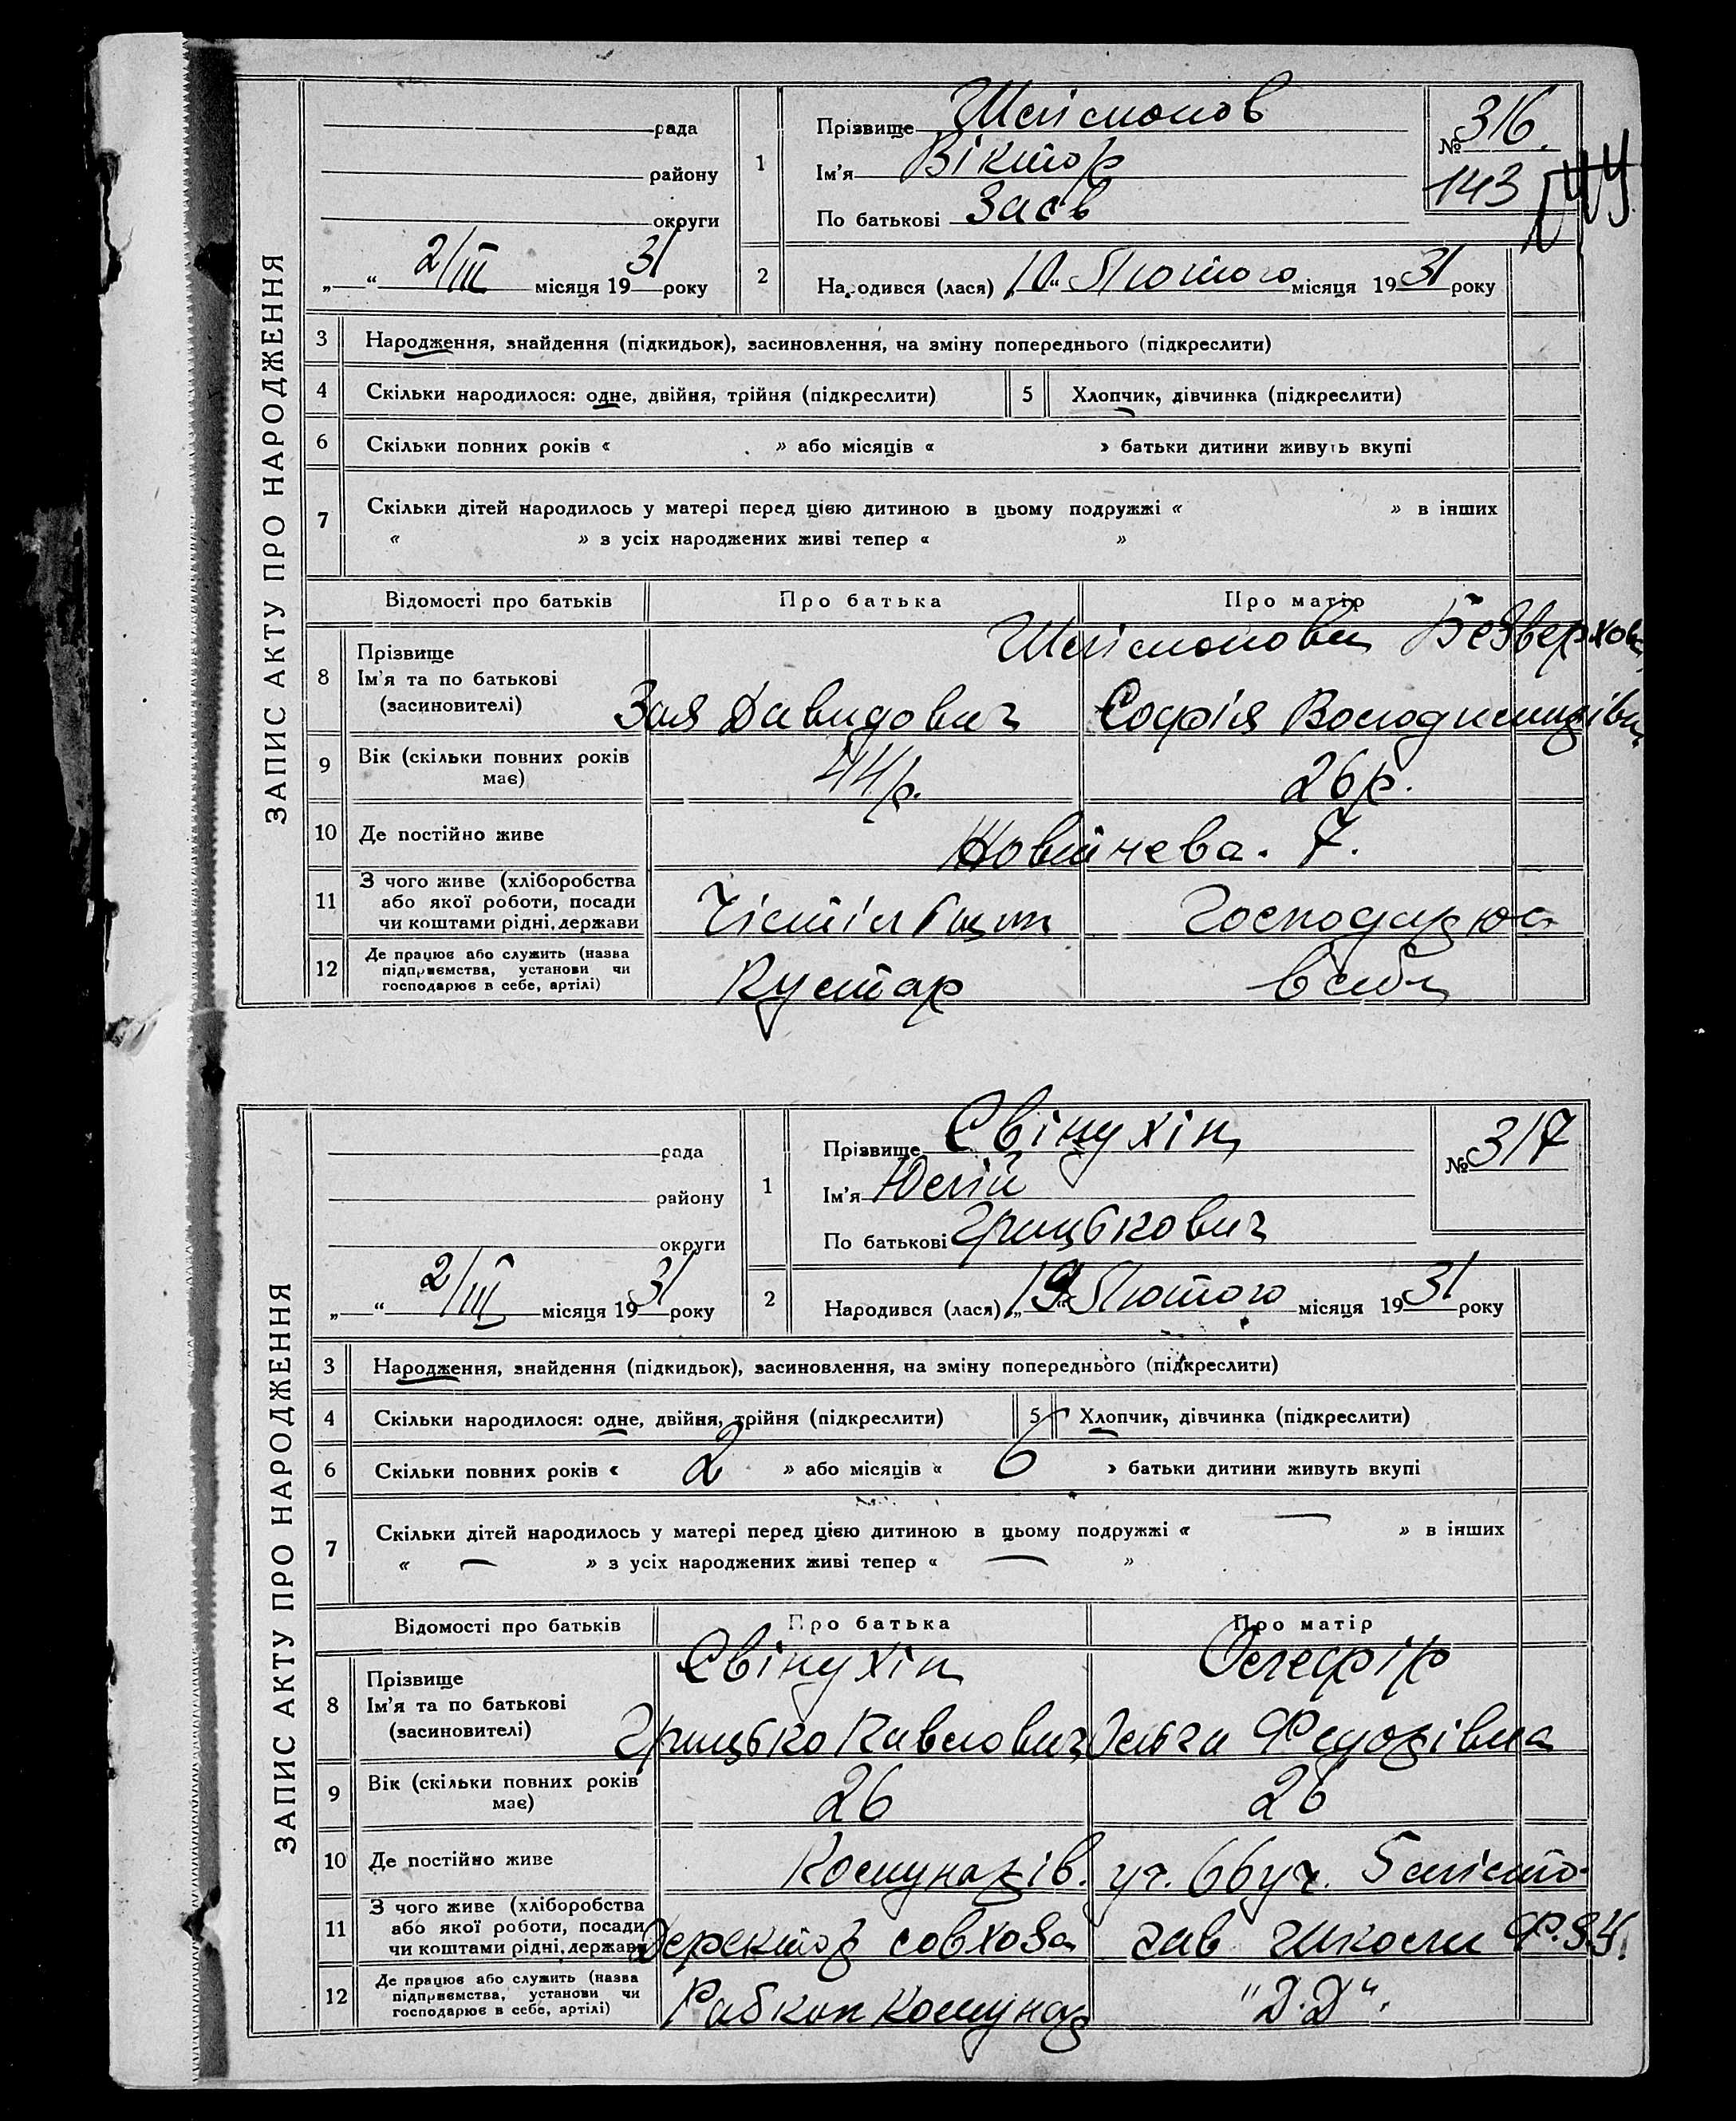 ЗАПИС АКТУ ПРО НАРОДЖЕННЯ
рада
району
округи
„ “ 2/III місяця 1931 року
1
Прізвище
Ім'я Віктор
По батькові Заєв
№ 316.
143
2
Народився (лася) „10“ Лютого місяця 1931 року
3 Народження, знайдення (підкидьок), засиновлення, на зміну попереднього (підкреслити)
4 Скільки народилося: одне, двійня, трійня (підкреслити) 5 Хлопчик, дівчинка (підкреслити)
6 Скільки повних років « » або місяців « » батьки дитини живуть вкупі
7 Скільки дітей народилось у матері перед цією дитиною в цьому подружжі « » в інших
« » з усіх народжених живі тепер « »
Відомості про батьків Про батька Про матір
8 Прізвище
Ім'я та по батькові
(засиновителі)
Безверхова
Зая Давидович Софія Володимирівна
9 Вік (скільки повних років має) 44 р. 26 р.
10 Де постійно живе 7.
11 З чого живе (хліборобства або якої роботи, посади чи коштами рідні, держави Господарює
12 Де працює або служить (назва підприємства, установи чи господарює в себе, артілі) Кустар в себе
ЗАПИС АКТУ ПРО НАРОДЖЕННЯ
рада
району
округи
„ “ 2/III місяця 1931 року
1
Прізвище Свінухін
Ім'я Юлій
По батькові Грицькович
№ 317
2
Народився (лася) „19“ Лютого місяця 1931 року
3 Народження, знайдення (підкидьок), засиновлення, на зміну попереднього (підкреслити)
4 Скільки народилося: одне, двійня, трійня (підкреслити) 5 Хлопчик, дівчинка (підкреслити)
6 Скільки повних років « 2 » або місяців « 6 » батьки дитини живуть вкупі
7 Скільки дітей народилось у матері перед цією дитиною в цьому подружжі « — » в інших
« — » з усіх народжених живі тепер « — »
Відомості про батьків Про батька Про матір
8 Прізвище
Ім'я та по батькові
(засиновителі)
Свінухін Олефір
Грицько Павлович Ольга Федорівна
9 Вік (скільки повних років має) 26 26
10 Де постійно живе Комунарів.
11 З чого живе (хліборобства або якої роботи, посади чи коштами рідні, держави Директор совхоза зав школи
12 Де працює або служить (назва підприємства, установи чи господарює в себе, артілі) Рабкоп Комунар "Д.Д".